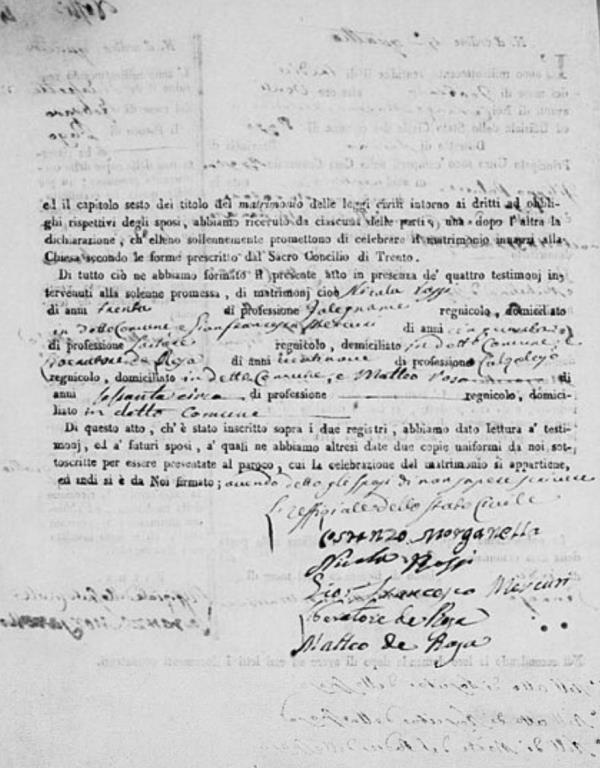 ed il capitolo sesto dei titolo del matrimonio delle leggi civili intorno ai dritti ad obbli-
ghi rispettivi degli sposi, abbiamo ricevuto da ciascuna delle parti, una dopo l'altra la
dichiarazione, ch'elleno sollennemente promettono di celebrare il matrimonio innanzi alla
Chiesa secondo le forme prescritto dal Sacro Concilio di Trento.
Di tutto ciò ne abbiamo formato il presente atto in presenza de' quattro testimonj in-
tervenuti alla solenne promessa, di matrimonj cioè Nicola Rossi
di anni trenta di professione Falegname regnicolo, domiciliato
in detto Comune e Gianfrancesco Mercuri di anni cinquanta
di professione Sartore regnicolo, domiciliato in detto Comune, e
Salvatore de Rosa di anni ventinove di professione Calzolajo
regnicolo, domiciliato in detto Comune, e Matteo di
anni settanta circa, di professione regnicolo, domici-
liato in detto Comune
Di questo atto, ch'è stato inscritto sopra i due registri, abbiamo dato lettura a' testi-
monj, ed a' faturi sposi, a' quali ne abbiamo altresì date due copie uniformi da noi sot-
toscritte per essere presentate al paroco, cui la celebrazione del matrimonio si appartiene,
ed indi si è da Noi firmato; avendo detto gli sposi di non sapere scrivere
L'uffiziale dello stato Civile
Costanzo Morganella
Nicola Rossi
Gio: Francesco Mercuri
Salvatore de Rosa
Matteo de Rosa